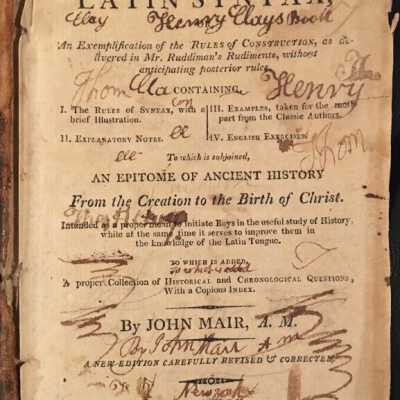 LATIN SYNTAX,
Clay Henry Clays Book
An Exemplification of the RULES of CONSTRUCTION, as de-
livered in Mr. Ruddiman's Rudiments, without
anticipating posterior rules.
Thom
CONTAINING,
Henry
I. THE RULES OF SYNTAX, with a
brief Illustration.
II. EXPLANATORY NOTES.
III. EXAMPLES, taken for the most
part from the Classic Authors.
IV. ENGLISH EXERCISES.
Thom
To which is subjoined,
AN EPITOME OF ANCIENT HISTORY
From the Creation to the Birth of Christ.
Intended as a proper mean to initiate Boys in the useful study of History,
while at the same time it serves to improve them in
the knowledge of the Latin Tongue.
TO WHICH IS ADDED,
A proper Collection of HISTORICAL and CHRONOLOGICAL QUESTIONS,
With a Copious INDEX.
By JOHN MAIR, A. M.
By John Mair A m
A NEW EDITION CAREFULLY REVISED & CORRECTED.